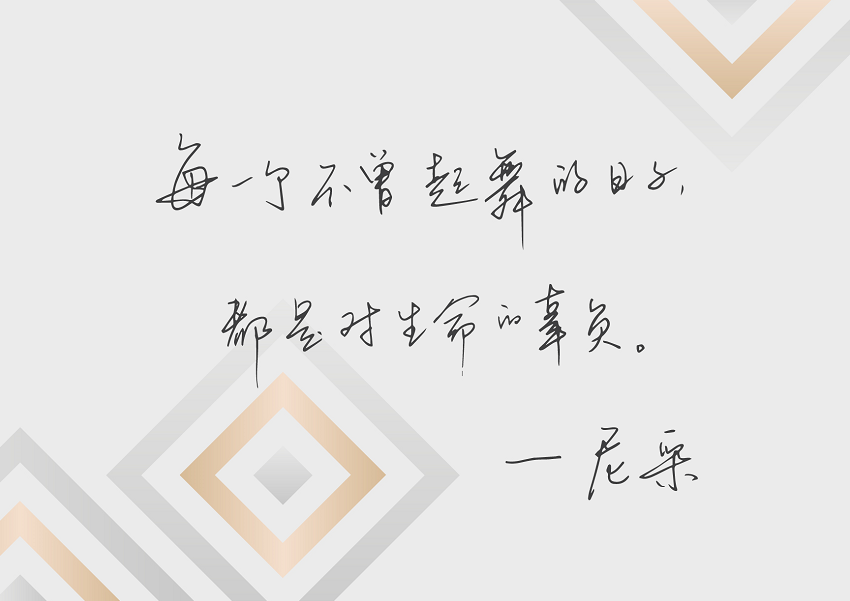 每一个不曾起舞的日子，
都是对生命的辜负。
—尼采